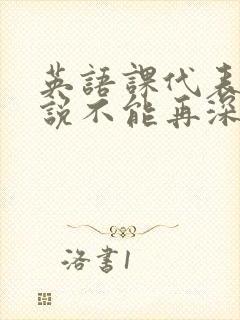 英語課代表
說不能再深
洛書1